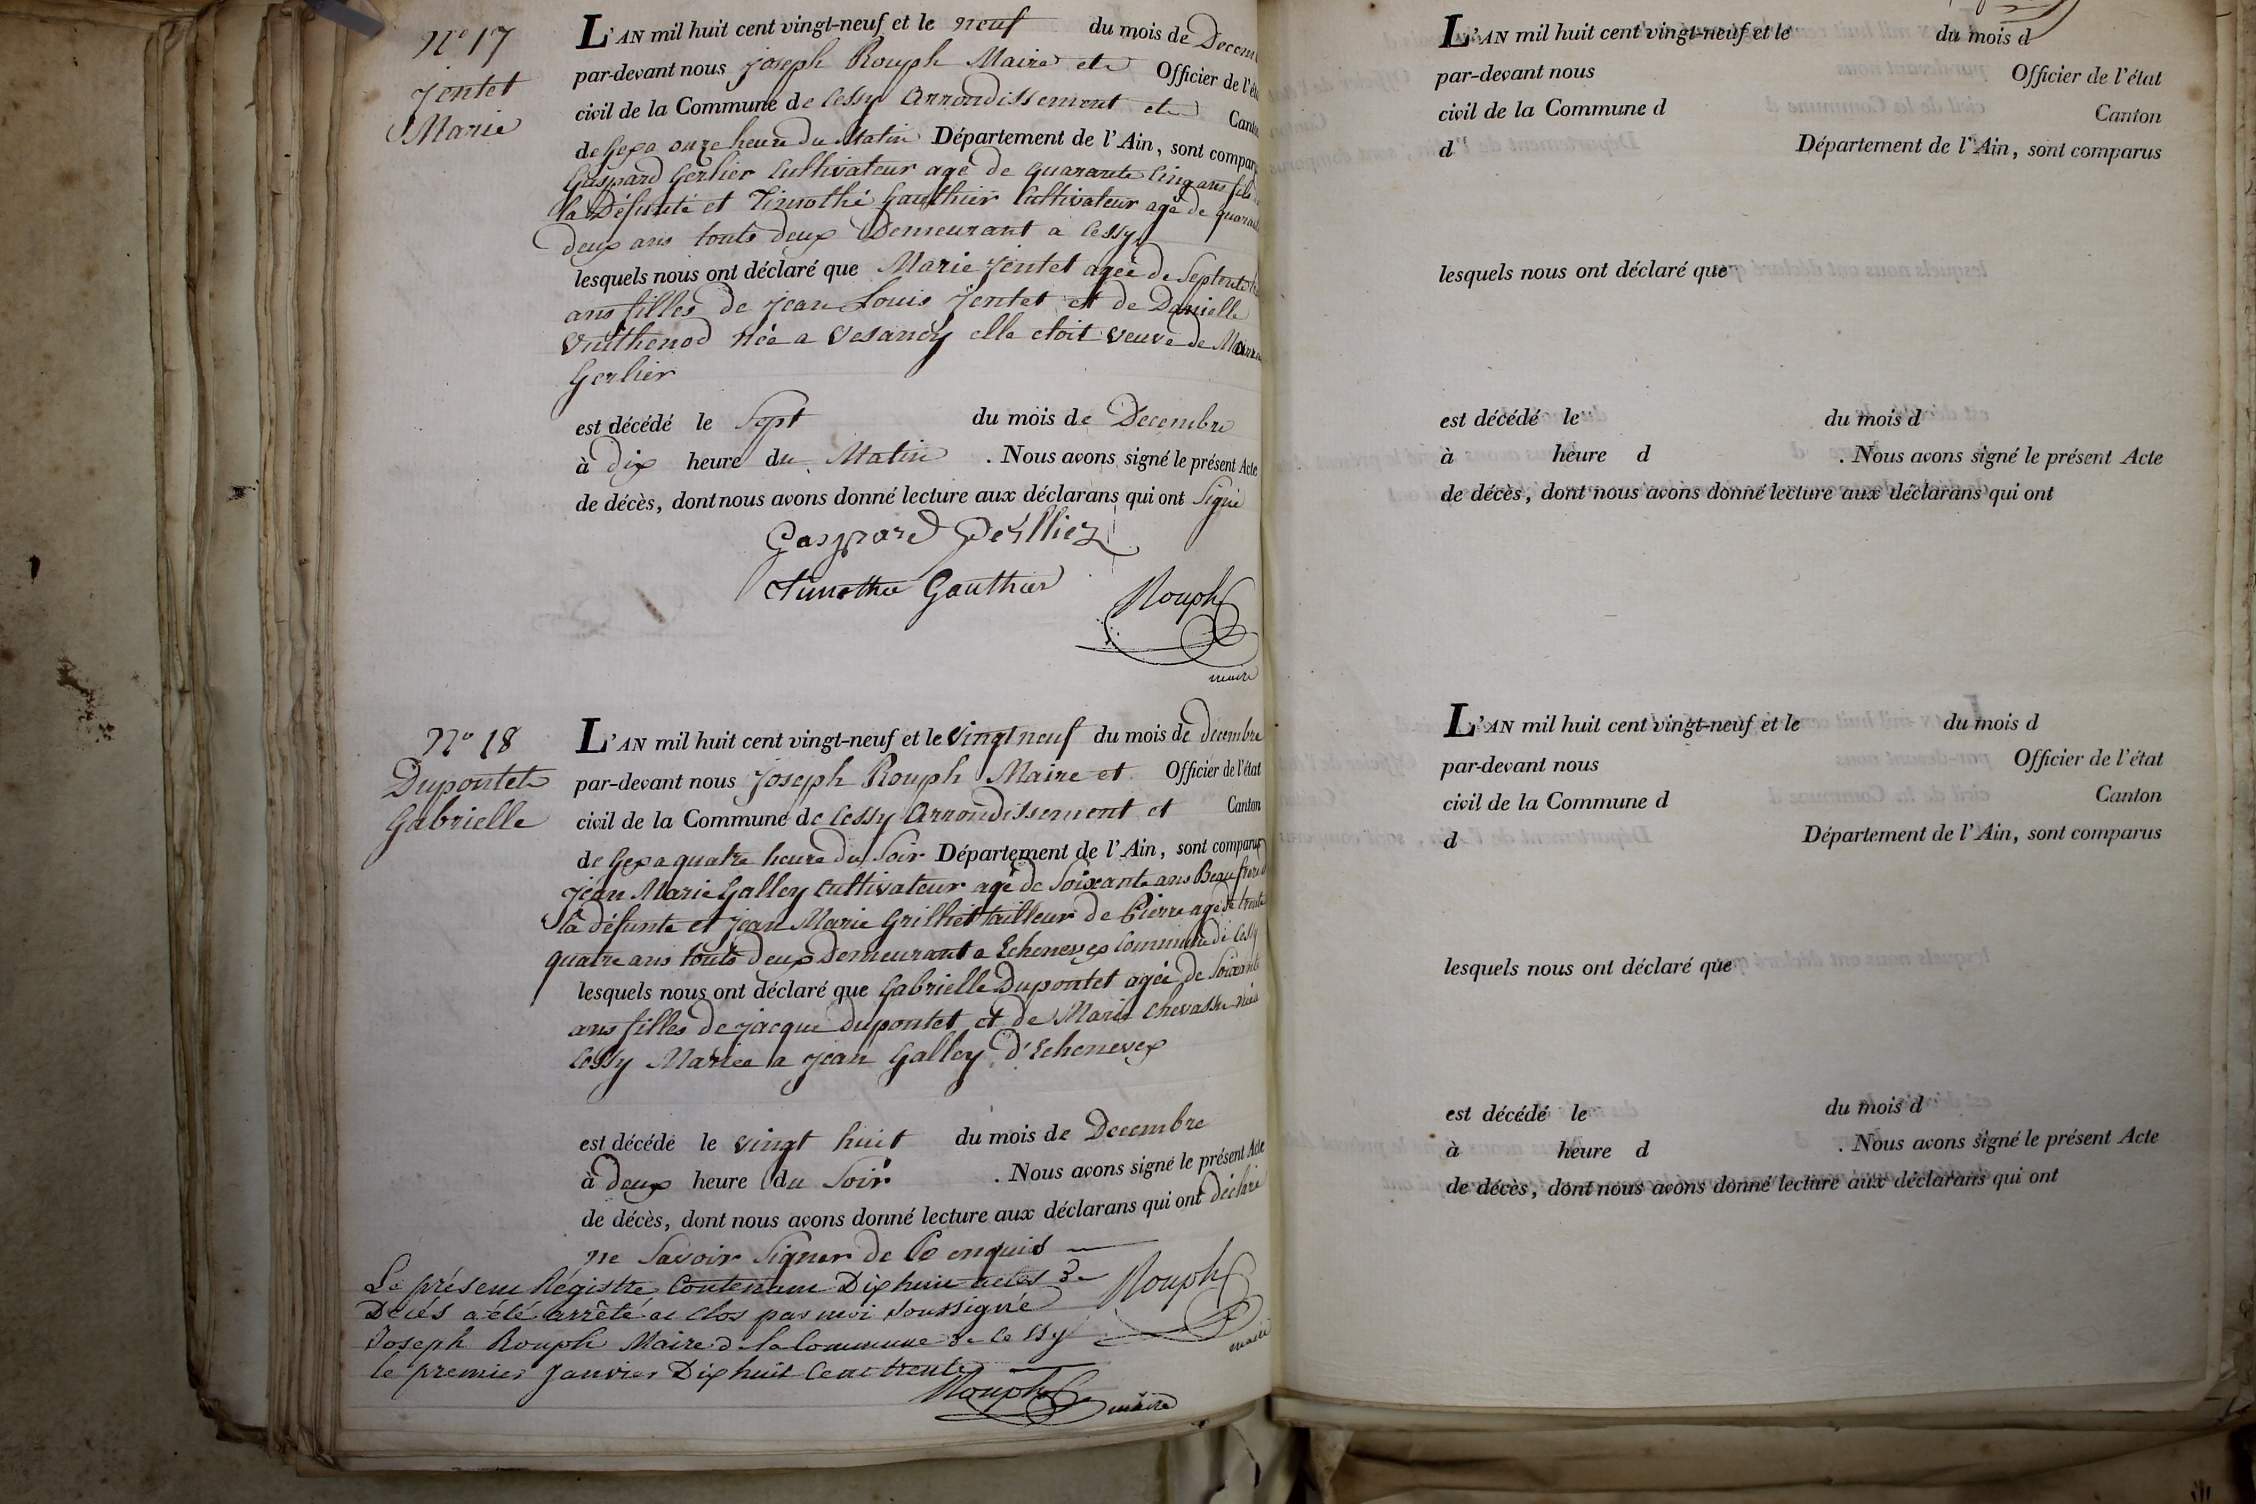 N° 17
Jentet
Marie
L'AN mil huit cent vingt-neuf et le neuf du mois de Decem
par-devant nous Joseph Rouph Maire et Officier de l'éta
civil de la Commune de Cessy Arrondissement et Canton
de Gex a onze heure du Matin Département de l'Ain, sont compar
Gaspard Gerlier Cultivateur agé de quarante cinq ans fils
la Défunte et Timothé Gauthier Cultivateur agé de quarant
deux ans touts deux Demeurant a Cessy
lesquels nous ont déclaré que Marie Jentet agée de Septente
ans filles de Jean Louis Jentet et de Danielle
Vuithenod née a Vesancy elle etoit veuve de
Gerlier
est décédé le Sept du mois de Decembre
à dix heure du Matin . Nous avons signé le présent Acte
de décès, dont nous avons donné lecture aux déclarans qui ont Signé
Gaspard Gerllier
Timothée Gauthier
Rouph
maire
N° 18
Dupontet
Gabrielle
L'AN mil huit cent vingt-neuf et le Vingt neuf du mois de decembre
par-devant nous Joseph Rouph Maire et Officier de l'état
civil de la Commune de Cessy Arrondissement et Canton
de Gex a quatre heure du Soir Département de l'Ain, sont comparus
Jean Marie Galley Cultivateur agé de Soixante ans Beau frere d
la défunte et Jean Marie Grilliet tailleur de Pierre agé de trente
quatre ans touts deux Demeurant a Echenevex Commune de Cessy
lesquels nous ont déclaré que Gabrielle Dupontet agée de Soixante
ans filles de Jacque dupontet et de Marie Chevassu née a
Cessy Mariee a Jean Galley d'Echenevex
est décédé le vingt huit du mois de Decembre
à deux heure du Soir . Nous avons signé le présent Acte
de décès, dont nous avons donné lecture aux déclarans qui ont déclaré
ne Savoir Signer de Ce enquis
Rouph
maire
Le présent Régistre Contenant Dix huit actes de
Décés a été arrêté et clos par moi soussigné
Joseph Rouph Maire de la Commune de Cessy
le premier Janvier Dix huit Cent trente
Rouph maire
L'AN mil huit cent vingt-neuf et le du mois d
par-devant nous Officier de l'état
civil de la Commune d Canton
d Département de l'Ain, sont comparus
lesquels nous ont déclaré que
est décédé le du mois d
à heure d . Nous avons signé le présent Acte
de décès, dont nous avons donné lecture aux déclarans qui ont
L'AN mil huit cent vingt-neuf et le du mois d
par-devant nous Officier de l'état
civil de la Commune d Canton
d Département de l'Ain, sont comparus
lesquels nous ont déclaré que
est décédé le du mois d
à heure d . Nous avons signé le présent Acte
de décès, dont nous avons donné lecture aux déclarans qui ont